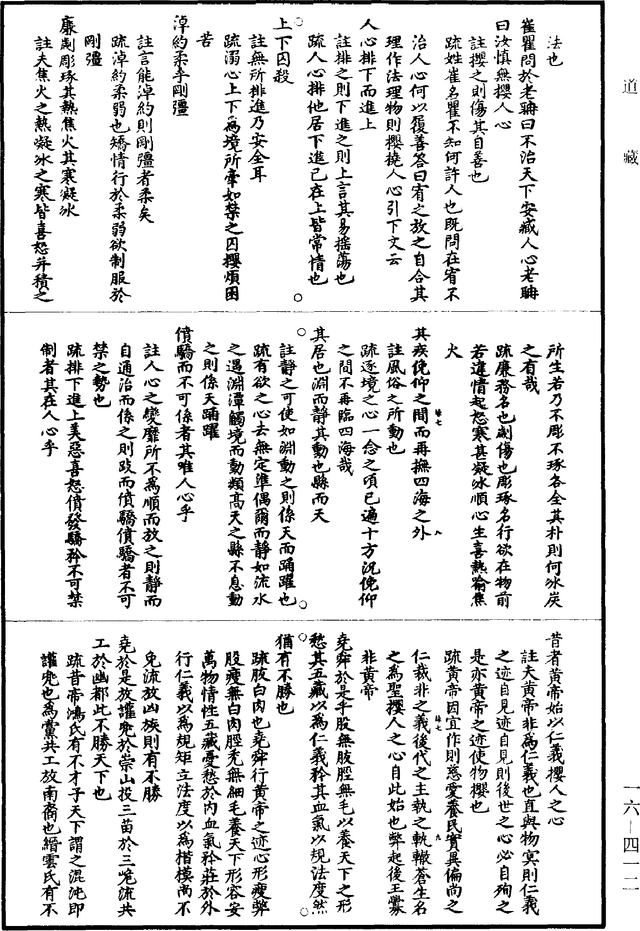 道藏
法也
崔瞿問於老聃曰不治天下安臧人心老聃
曰汝慎無攖人心
註攖之則傷其自善也
疏姓崔名瞿不知何許人也既問在宥不
治人心何以履善答曰宥之放之自合其
理作法理物則攖撓人心引下文云
人心排下而進上
註排之則下進之則上言其易搖蕩也
疏人心排他居下進己在上皆常情也
上下囚殺
註無所排進乃安全耳
疏溺心上下為境所牽如禁之囚攖煩困
苦
淖約柔乎剛彊
註言能淖約則剛彊者柔矣
疏淖約柔弱也矯情行於柔弱欲制服於
剛彊
廉劌彫琢其熱焦火其寒凝冰
註夫焦火之熱凝冰之寒皆喜怒并積之
所生若乃不彫不琢各全其朴則何冰炭
之有哉
疏廉務名也劌傷也彫琢名行欲在物前
若違情起怒寒甚凝冰順心生喜熱踰焦
火
其疾俛仰之間而再撫四海之外
註風俗之所動也
疏逐境之心一念之頃已遍十方況俛仰
之間不再臨四海哉
其居也淵而靜其動也縣而天
註靜之可使如淵動之則係天而踊躍也
疏有欲之心去無定準偶爾而靜如流水
之遇淵潭觸境而動類高天之縣不息動
之則係天踊躍
僨驕而不可係者其唯人心乎
註人心之變靡所不為順而放之則靜而
自通治而係之則跂而僨驕僨驕者不可
禁之勢也
疏排下進上美惡喜怒僨發驕矜不可禁
制者其在人心乎
昔者黃帝始以仁義攖人之心
註夫黃帝非為仁義也直與物冥則仁義
之迹自見迹自見則後世之心必自殉之
是亦黃帝之迹使物攖也
疏黃帝因宜作則慈愛養民實異偏尚之
仁裁非之義後代之主執之軌轍蒼生名
之為聖攖人之心自此始也弊起後王釁
非黃帝
堯舜於是乎股無胈脛無毛以養天下之形
愁其五藏以為仁義矜其血氣以規法度然
猶有不勝也
疏胈白肉也堯舜行黃帝之迹心形瘦弊
股瘦無白肉脛禿無細毛養天下形容安
萬物情性五藏憂愁於內血氣矜莊於外
行仁義以為規矩立法度以為楷模尚不
免流放凶族則有不勝
堯於是放讙兜於崇山投三苗於三峗流共
工於幽都此不勝天下也
疏昔帝鴻氏有不才子天下謂之混沌即
讙兜也為黨共工放南裔也縉雲氏有不
一六—四一二